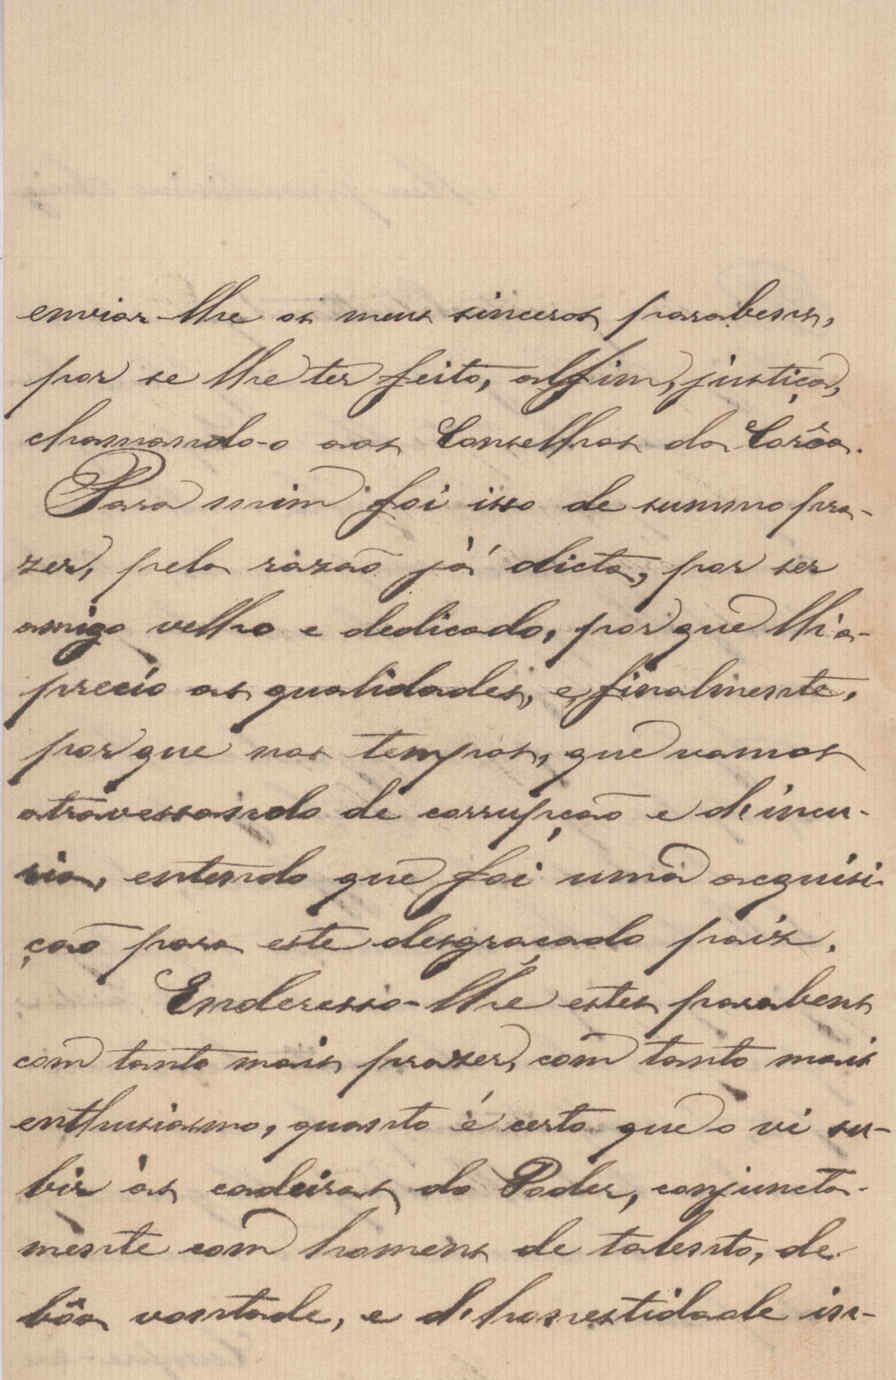 enviar-lhe os meus sinceros parabens,
por se lhe ter feito, alfim, justiça,
chamando-o aos Conselhos da Corôa.
Para mim foi isso de summo pra-
zer, pela razaõ já dicta, por ser
amigo velho e dedicado, por que lhi a-
precio as qualidades, e, finalmente,
por que nos tempos, que vamos
atravessando de corrupçaõ e d'incu-
ria, entendo que foi uma acquisi-
çaõ para este desgraçado paiz.
Enderesso-lhe estes parabens
com tanto mais prazer, com tanto mais
enthusiasmo, quanto é certo que o vi su-
bir ás cadeiras do Poder, conjuncta-
mente com homens de talento, de
bôa vontade, e d'honestidade in-